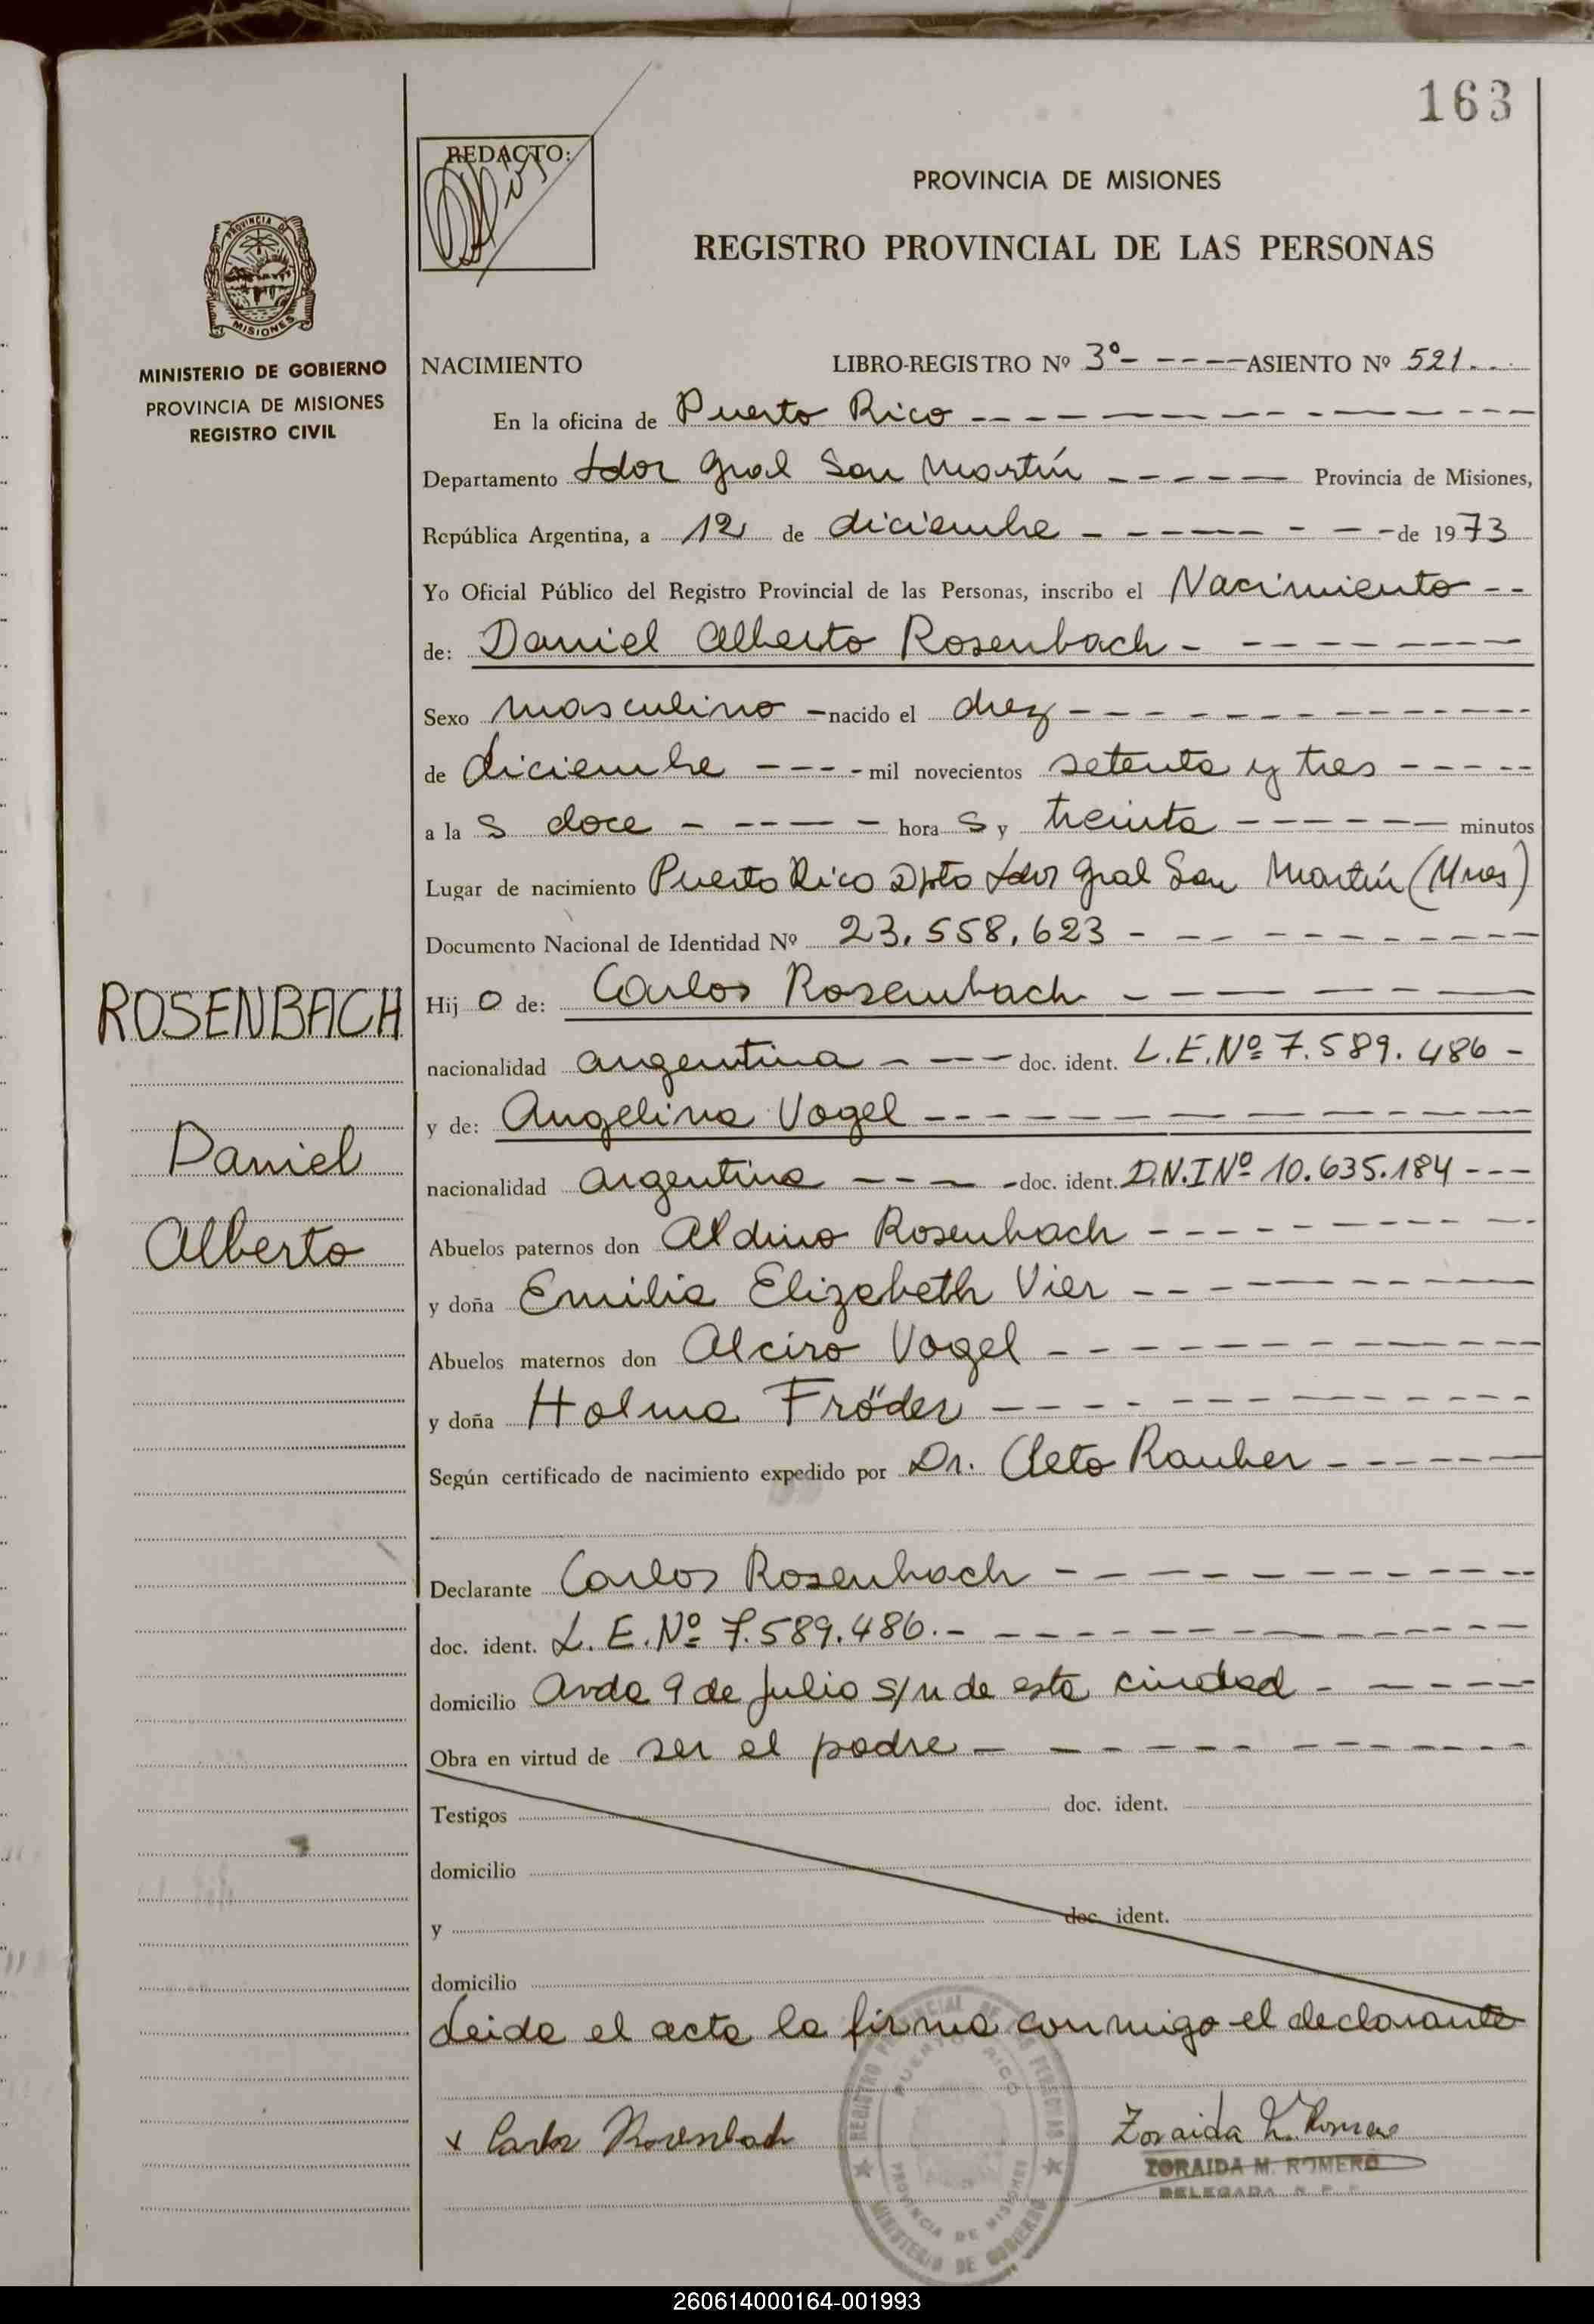 163
REDACTO:
PROVINCIA DE MISIONES
REGISTRO PROVINCIAL DE LAS PERSONAS
PROVINCIA DE
MISIONES
MINISTERIO DE GOBIERNO
PROVINCIA DE MISIONES
REGISTRO CIVIL
NACIMIENTO LIBRO-REGISTRO Nº 3º- ---- ASIENTO Nº 521...
En la oficina de Puerto Rico
Departamento Ldor Gral San Martín Provincia de Misiones,
República Argentina, a 12 de diciembre de 1973
Yo Oficial Público del Registro Provincial de las Personas, inscribo el Nacimiento
de: Daniel Alberto Rosenbach
Sexo masculino nacido el diez
de diciembre mil novecientos setenta y tres
a la s doce hora s y treinta minutos
Lugar de nacimiento Puerto Rico Dpto Ldor Gral San Martín (Mnes)
Documento Nacional de Identidad Nº 23.558.623
ROSENBACH
Hij o de: Carlos Rosenbach
nacionalidad argentina doc. ident. L.E.Nº 7.589.486
y de: Angelina Vogel
Daniel
nacionalidad argentina doc. ident. D.N.I Nº 10.635.184
Alberto
Abuelos paternos don Aldino Rosenbach
y doña Emilia Elizabeth Vier
Abuelos maternos don Alciro Vogel
y doña Holma Fröder
Según certificado de nacimiento expedido por Dr. Cleto Rauber
Declarante Carlos Rosenbach
doc. ident. L.E.Nº 7.589.486.-
domicilio Avda 9 de Julio s/n de esta ciudad
Obra en virtud de ser el padre
Testigos doc. ident.
domicilio
y doc. ident.
domicilio
Leida el acta la firma conmigo el declarante
REGISTRO PROVINCIAL DE LAS PERSONAS
PUERTO RICO
PROVINCIA DE MISIONES
MINISTERIO DE GOBIERNO
x Carlos Rosenbach
Zoraida M. Romero
ZORAIDA M. ROMERO
DELEGADA R. P. P.
260614000164-001993